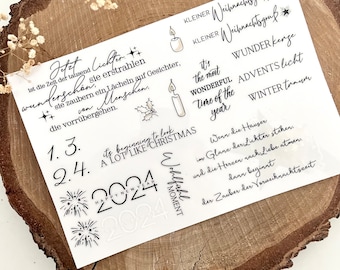 Jetzt
ist die Zeit der tausend Lichter
wunderschön, sie erstrahlen
sie zaubern ein Lächeln auf Gesichter,
von Menschen,
die vorrübergehen.
KLEINER Weihnachtsgruß
KLEINER Weihnachtsgruß
it's
the most
WONDERFUL
time of the
year
WUNDERkerze
ADVENTSlicht
WINTERtraum
1. 3.
2. 4.
it's beginning to look
A LOT LIKE CHRISTMAS
2024
Wohlfühl
MOMENT
Wenn die Häuser
im Glanz der Lichter stehen
und die Herzen nach Liebe sehnen
dann beginnt
der Zauber der Vorweihnachtszeit